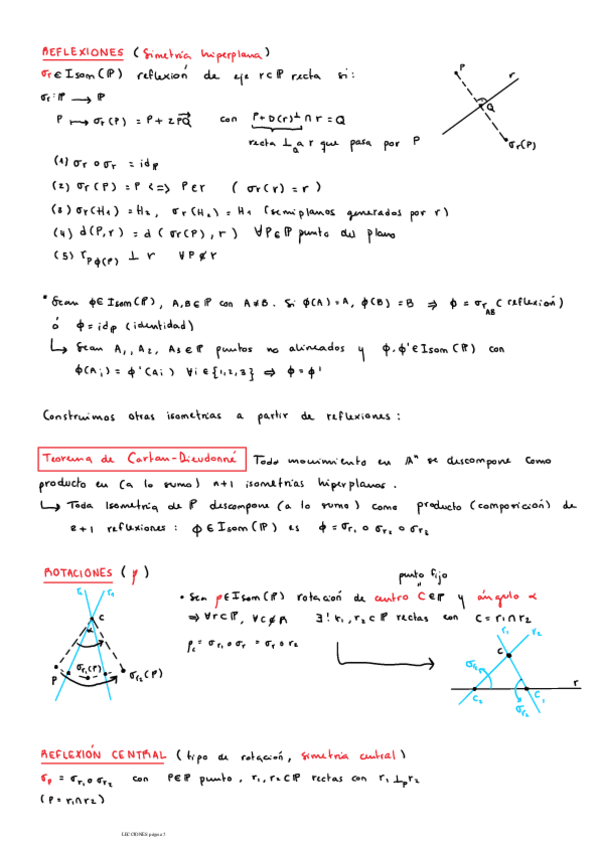 REFLEXIONES (simetría hiperplana)
σr ∈ Isom(ℙ) reflexión de eje r⊂ℙ recta si:
σr: ℙ → ℙ
P ↦ σr(P) = P + 2PQ⃗ con P+D(r)^⊥ ∩ r = Q
recta ⊥_Q a r que pasa por P
P
r
Q
σr(P)
(1) σr ∘ σr = id_ℙ
(2) σr(P) = P <=> P∈r (σr(r) = r)
(3) σr(H1) = H2, σr(H2) = H1 (semiplanos generados por r)
(4) d(P,r) = d(σr(P), r) ∀P∈ℙ punto del plano
(5) r_Pϕ(P) ⊥ r ∀P∉r
• Sean ϕ∈Isom(ℙ), A,B∈ℙ con A≠B. Si ϕ(A)=A, ϕ(B)=B ⇒ ϕ = σr_AB (reflexión)
ó ϕ = id_ℙ (identidad)
↳ Sean A1, A2, A3∈ℙ puntos no alineados y ϕ,ϕ'∈Isom(ℙ) con
ϕ(Ai) = ϕ'(Ai) ∀i∈{1,2,3} ⇒ ϕ = ϕ'
Construimos otras isometrías a partir de reflexiones:
Teorema de Cartan-Dieudonné Todo movimiento en Aⁿ se descompone como
producto en (a lo sumo) n+1 isometrías hiperplanas.
↳ Toda Isometría de ℙ descompone (a lo sumo) como producto (composición) de
2+1 reflexiones: ϕ∈Isom(ℙ) es ϕ = σr1 ∘ σr2 ∘ σr3
ROTACIONES (ρ)
punto fijo
• Sea ρ∈Isom(ℙ) rotación de centro C∈ℙ y ángulo α
⇒ ∀r⊂ℙ, ∃! r1, r2⊂ℙ rectas con C = r1∩r2
ρc = σr1∘σr = σr∘r2
r1
C
P
σr1(P)
σr2(P)
r1
r2
C
σr2
r
C2
C1
REFLEXIÓN CENTRAL (tipo de rotación, simetría central)
σp = σr1∘σr2 con P∈ℙ punto, r1, r2⊂ℙ rectas con r1 ⊥_P r2
(P = r1∩r2)
LECCIONES página 5